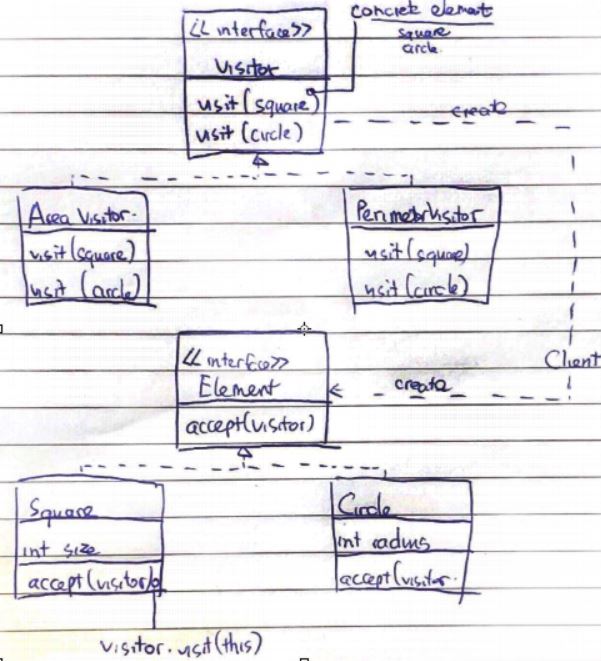 <<interface>>
Visitor
visit(square)
visit(circle)
concrete element
square
circle
create
Area Visitor
visit(square)
visit (circle)
PerimeterVisitor
visit(square)
visit(circle)
Client
<<interface>>
Element
accept(visitor)
create
Square
int size
accept(visitor)
Circle
int radius
accept(visitor
visitor.visit(this)